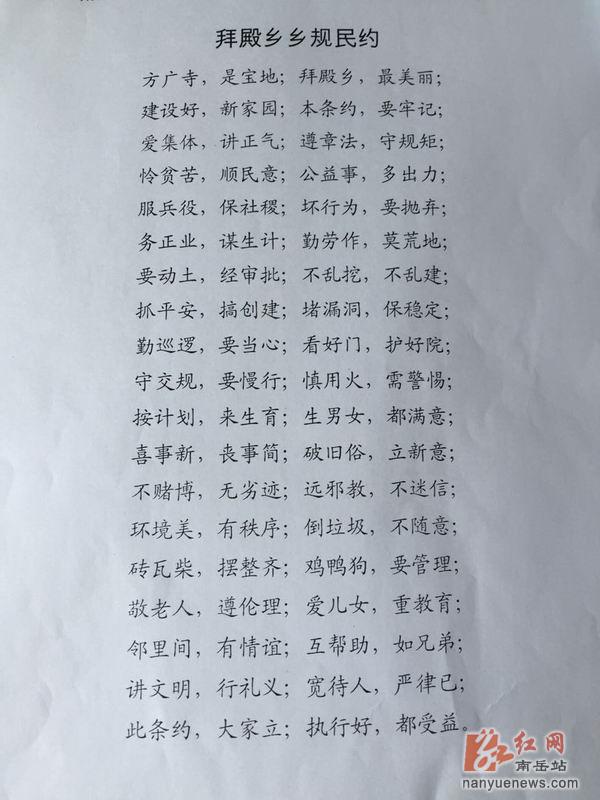 拜殿乡乡规民约
方广寺，是宝地；拜殿乡，最美丽；
建设好，新家园；本条约，要牢记；
爱集体，讲正气；遵章法，守规矩；
怜贫苦，顺民意；公益事，多出力；
服兵役，保社稷；坏行为，要抛弃；
务正业，谋生计；勤劳作，莫荒地；
要动土，经审批；不乱挖，不乱建；
抓平安，搞创建；堵漏洞，保稳定；
勤巡逻，要当心；看好门，护好院；
守交规，要慢行；慎用火，需警惕；
按计划，来生育；生男女，都满意；
喜事新，丧事简；破旧俗，立新意；
不赌博，无劣迹；远邪教，不迷信；
环境美，有秩序；倒垃圾，不随意；
砖瓦柴，摆整齐；鸡鸭狗，要管理；
敬老人，遵伦理；爱儿女，重教育；
邻里间，有情谊；互帮助，如兄弟；
讲文明，行礼义；宽待人，严律己；
此条约，大家立；执行好，都受益。
红网
南岳站
nanyuenews.com